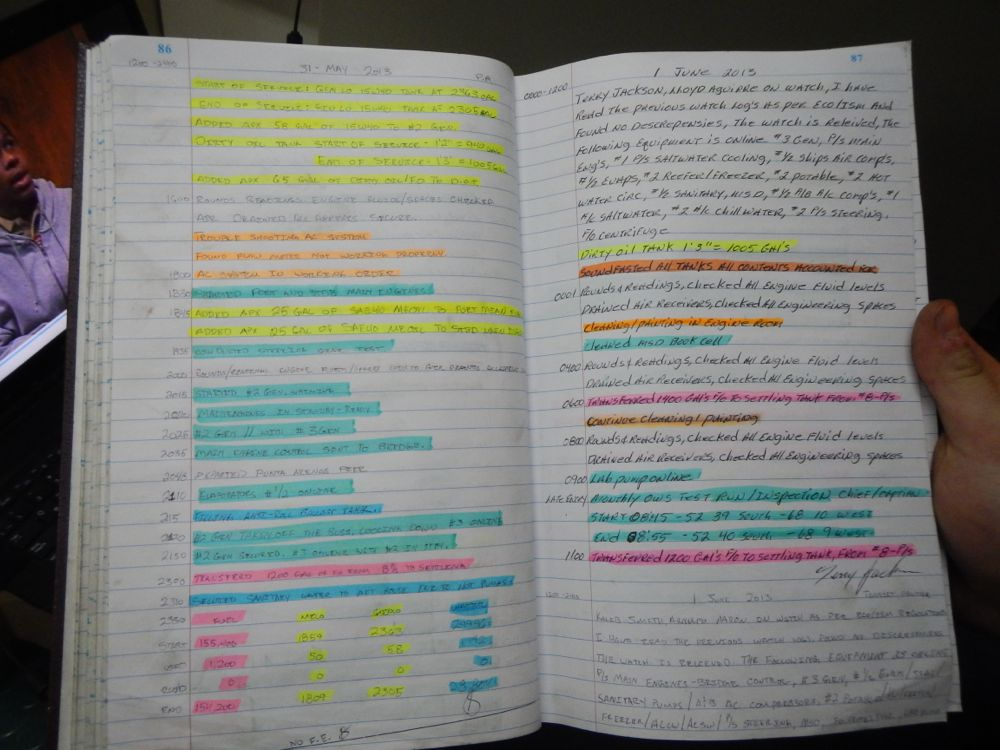 86
1200-2400
31-MAY 2013 P.A.
START OF SERVICE: GEN LO 15W40 TANK AT 2363 GAL
END OF SERVICE: GEN LO 15W40 TANK AT 2305 GAL
ADDED APX 58 GAL OF 15W40 TO #2 GEN.
DIRTY OIL TANK START OF SERVICE - 1'2" =
END OF SERVICE - 1'3" = 1005 GAL
ADDED APX 65 GAL OF DIRTY OIL/FO TO DIRT.
1600 ROUNDS READINGS. ENGINE FLUIDS/SPACES CHECKED
AIR DRAINED ALL APPEARS SECURE.
TROUBLE SHOOTING AC SYSTEM
FOUND FLOW METER NOT WORKING PROPERLY.
1800 AC SYSTEM IN WORKING ORDER
1830 STARTED PORT AND STBD MAIN ENGINES
1845 ADDED APX 25 GAL OF SAE40 MEOIL TO PORT MAIN ENG
ADDED APX 25 GAL OF SAE40 MEOIL TO STBD MAIN ENG
1935 CONDUCTED STEERING GEAR TEST.
2000 ROUNDS/READINGS ENGINE
2015 STARTED #2 GEN. WARMING
MAIN ENGINES IN STANDBY READY
2025 #2 GEN // WITH #3 GEN
2035 MAIN ENGINE CONTROL SENT TO BRIDGE.
2048 DEPARTED PUNTA ARENAS PEER
2110 EVAPORATORS #1/2 ONLINE
215 FILLING ANTI-ROLL
#2 GEN TAKEN OFF THE BUSS, COOLING DOWN #3 ONLINE
2150 #2 GEN SECURED. #3 ONLINE WITH #2 IN STBY.
2300 TRANSFERED 1200 GAL OF FO FROM 8P/S TO SETTLING
2310 SECURED SANITARY WATER TO AFT HOUSE DUE TO HOT PUMPS
2330 FUEL MELO GENLO WATER
START 155,400 1859 2363
USE 1,200 50 58 0
0 0 0
END 154,200 1809 2305
NO F.E.
87
1 JUNE 2013
0000-1200 TERRY JACKSON, LLOYD AGUIRRE ON WATCH, I HAVE
READ THE PREVIOUS WATCH LOG'S AS PER ECO/ISM AND
FOUND NO DESCREPENSIES, THE WATCH IS RELEIVED, THE
FOLLOWING EQUIPMENT IS ONLINE #3 GEN, P/S MAIN
ENG'S, #1 P/S SALTWATER COOLING, #1/2 SHIPS AIR COMP'S,
#1/2 EVAPS, #2 REEFER/FREEZER, #2 POTABLE, #2 HOT
WATER CIRC, #1/2 SANITARY, MSD, #1/2 P/B A/C COMP'S, #1
A/C SALTWATER, #2 A/C CHILL WATER, #2 P/S STEERING,
F/O CENTRIFUGE
DIRTY OIL TANK 1'3" = 1005 GAL'S
SOUNDFASTED ALL TANKS ALL CONTENTS ACCOUNTED FOR
0001 ROUNDS & READINGS, CHECKED ALL ENGINE FLUID LEVELS
DRAINED AIR RECEIVERS, CHECKED ALL ENGINEERING SPACES
CLEANING/PAINTING IN ENGINE ROOM
CLEANED MSD BOOK CELL
0400 ROUNDS & READINGS, CHECKED ALL ENGINE FLUID LEVELS
DRAINED AIR RECEIVERS, CHECKED ALL ENGINEERING SPACES
0600 TRANSFERRED 1400 GAL'S F/O TO SETTLING TANK FROM #8-P/S
CONTINUE CLEANING/PAINTING
0800 ROUNDS & READINGS, CHECKED ALL ENGINE FLUID LEVELS
DRAINED AIR RECEIVERS, CHECKED ALL ENGINEERING SPACES
0900 LAB PUMP ONLINE
LATE ENTRY MONTHLY OWS TEST RUN/INSPECTION CHIEF/CAPTAIN
START @ 0815 - 52 39 SOUTH - 68 10 WEST
END @ 0855 - 52 40 SOUTH - 68 9 WEST
1100 TRANSFERRED 1200 GAL'S F/O TO SETTLING TANK, FROM #8-P/S
Terry Jackson
1201-2400 1 JUNE 2013
KALEB SMITH AARON ON WATCH AS PER ECO/ISM REGULATIONS
I HAVE READ THE PREVIOUS WATCH LOGS FOUND NO DESCREPANCIES
THE WATCH IS RELIEVED. THE FOLLOWING EQUIPMENT IS ONLINE
P/S MAIN ENGINES-BRIDGE CONTROL, #3 GEN, #1/2 EVAP/
SANITARY PUMPS / AC COMPRESSORS, #2
FREEZER/ACCW/ACSW/ P/S STEERING, MSD,